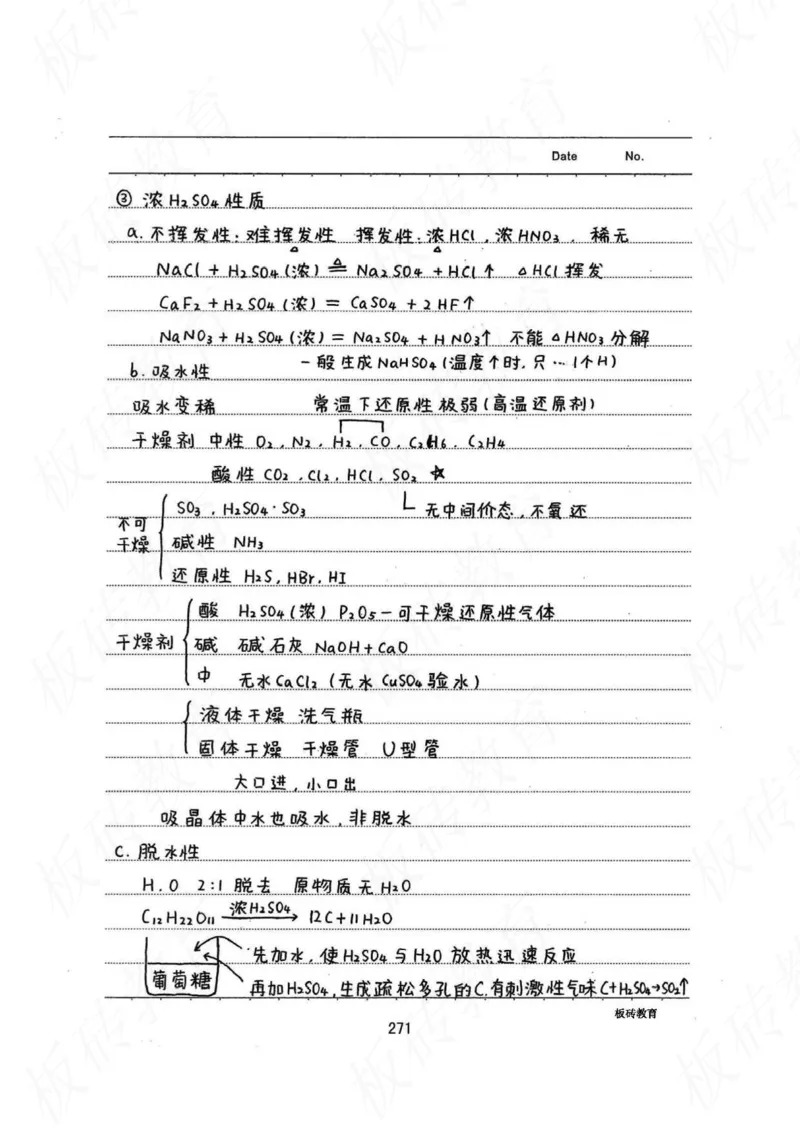 Date No.
③ 浓H₂SO₄性质
a. 不挥发性:难挥发性 挥发性:浓HCl,浓HNO₃,稀无
NaCl + H₂SO₄(浓) ≜ Na₂SO₄ + HCl↑ △HCl挥发
CaF₂ + H₂SO₄(浓) = CaSO₄ + 2HF↑
NaNO₃ + H₂SO₄(浓) = Na₂SO₄ + HNO₃↑ 不能△HNO₃分解
b. 吸水性 一般生成NaHSO₄(温度↑时,只…1个H)
吸水变稀 常温下还原性极弱(高温还原剂)
干燥剂 中性 O₂,N₂,H₂,CO,C₂H₆,C₂H₄
酸性 CO₂,Cl₂,HCl,SO₂ ☆
不可干燥 SO₃,H₂SO₄·SO₃ 无中间价态,不氧还
碱性 NH₃
还原性 H₂S,HBr,HI
干燥剂 酸 H₂SO₄(浓) P₂O₅—可干燥还原性气体
碱 碱石灰 NaOH+CaO
中 无水CaCl₂(无水CuSO₄验水)
液体干燥 洗气瓶
固体干燥 干燥管 U型管
大口进,小口出
吸晶体中水也吸水,非脱水
C. 脱水性
H.O 2:1脱去 原物质无H₂O
C₁₂H₂₂O₁₁ 浓H₂SO₄→ 12C+11H₂O
先加水,使H₂SO₄与H₂O放热迅速反应
葡萄糖 再加H₂SO₄,生成疏松多孔的C.有刺激性气味C+H₂SO₄→SO₂↑
板砖教育
271